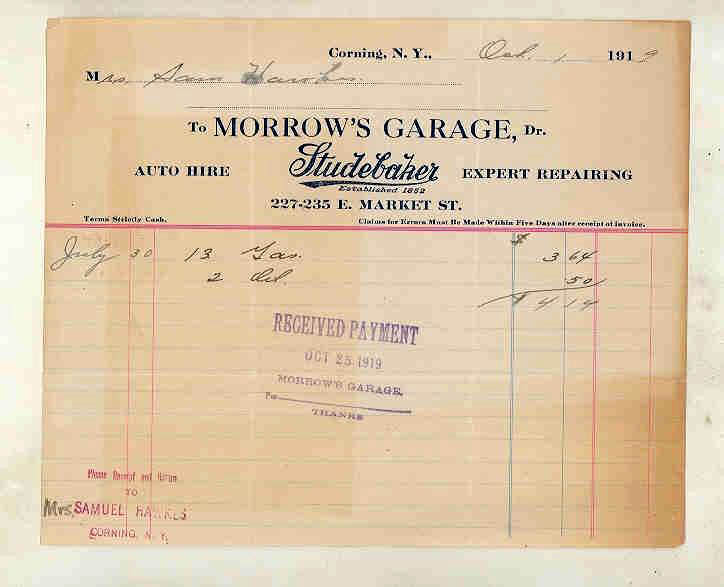 Corning, N. Y., Oct. 1 1919
Mrs. Sam Hawkes.
To MORROW'S GARAGE, Dr.
AUTO HIRE Studebaker EXPERT REPAIRING
Established 1852
227-235 E. MARKET ST.
Terms Strictly Cash. Claims for Errors Must Be Made Within Five Days after receipt of invoice.
July 30 13 Gas. $ 3 64
2 Oil. 50
$ 4 14
RECEIVED PAYMENT
OCT 25 1919
MORROW'S GARAGE.
Per
THANKS
Please Receipt and Return
TO
Mrs. SAMUEL HAWKES
CORNING, N. Y.